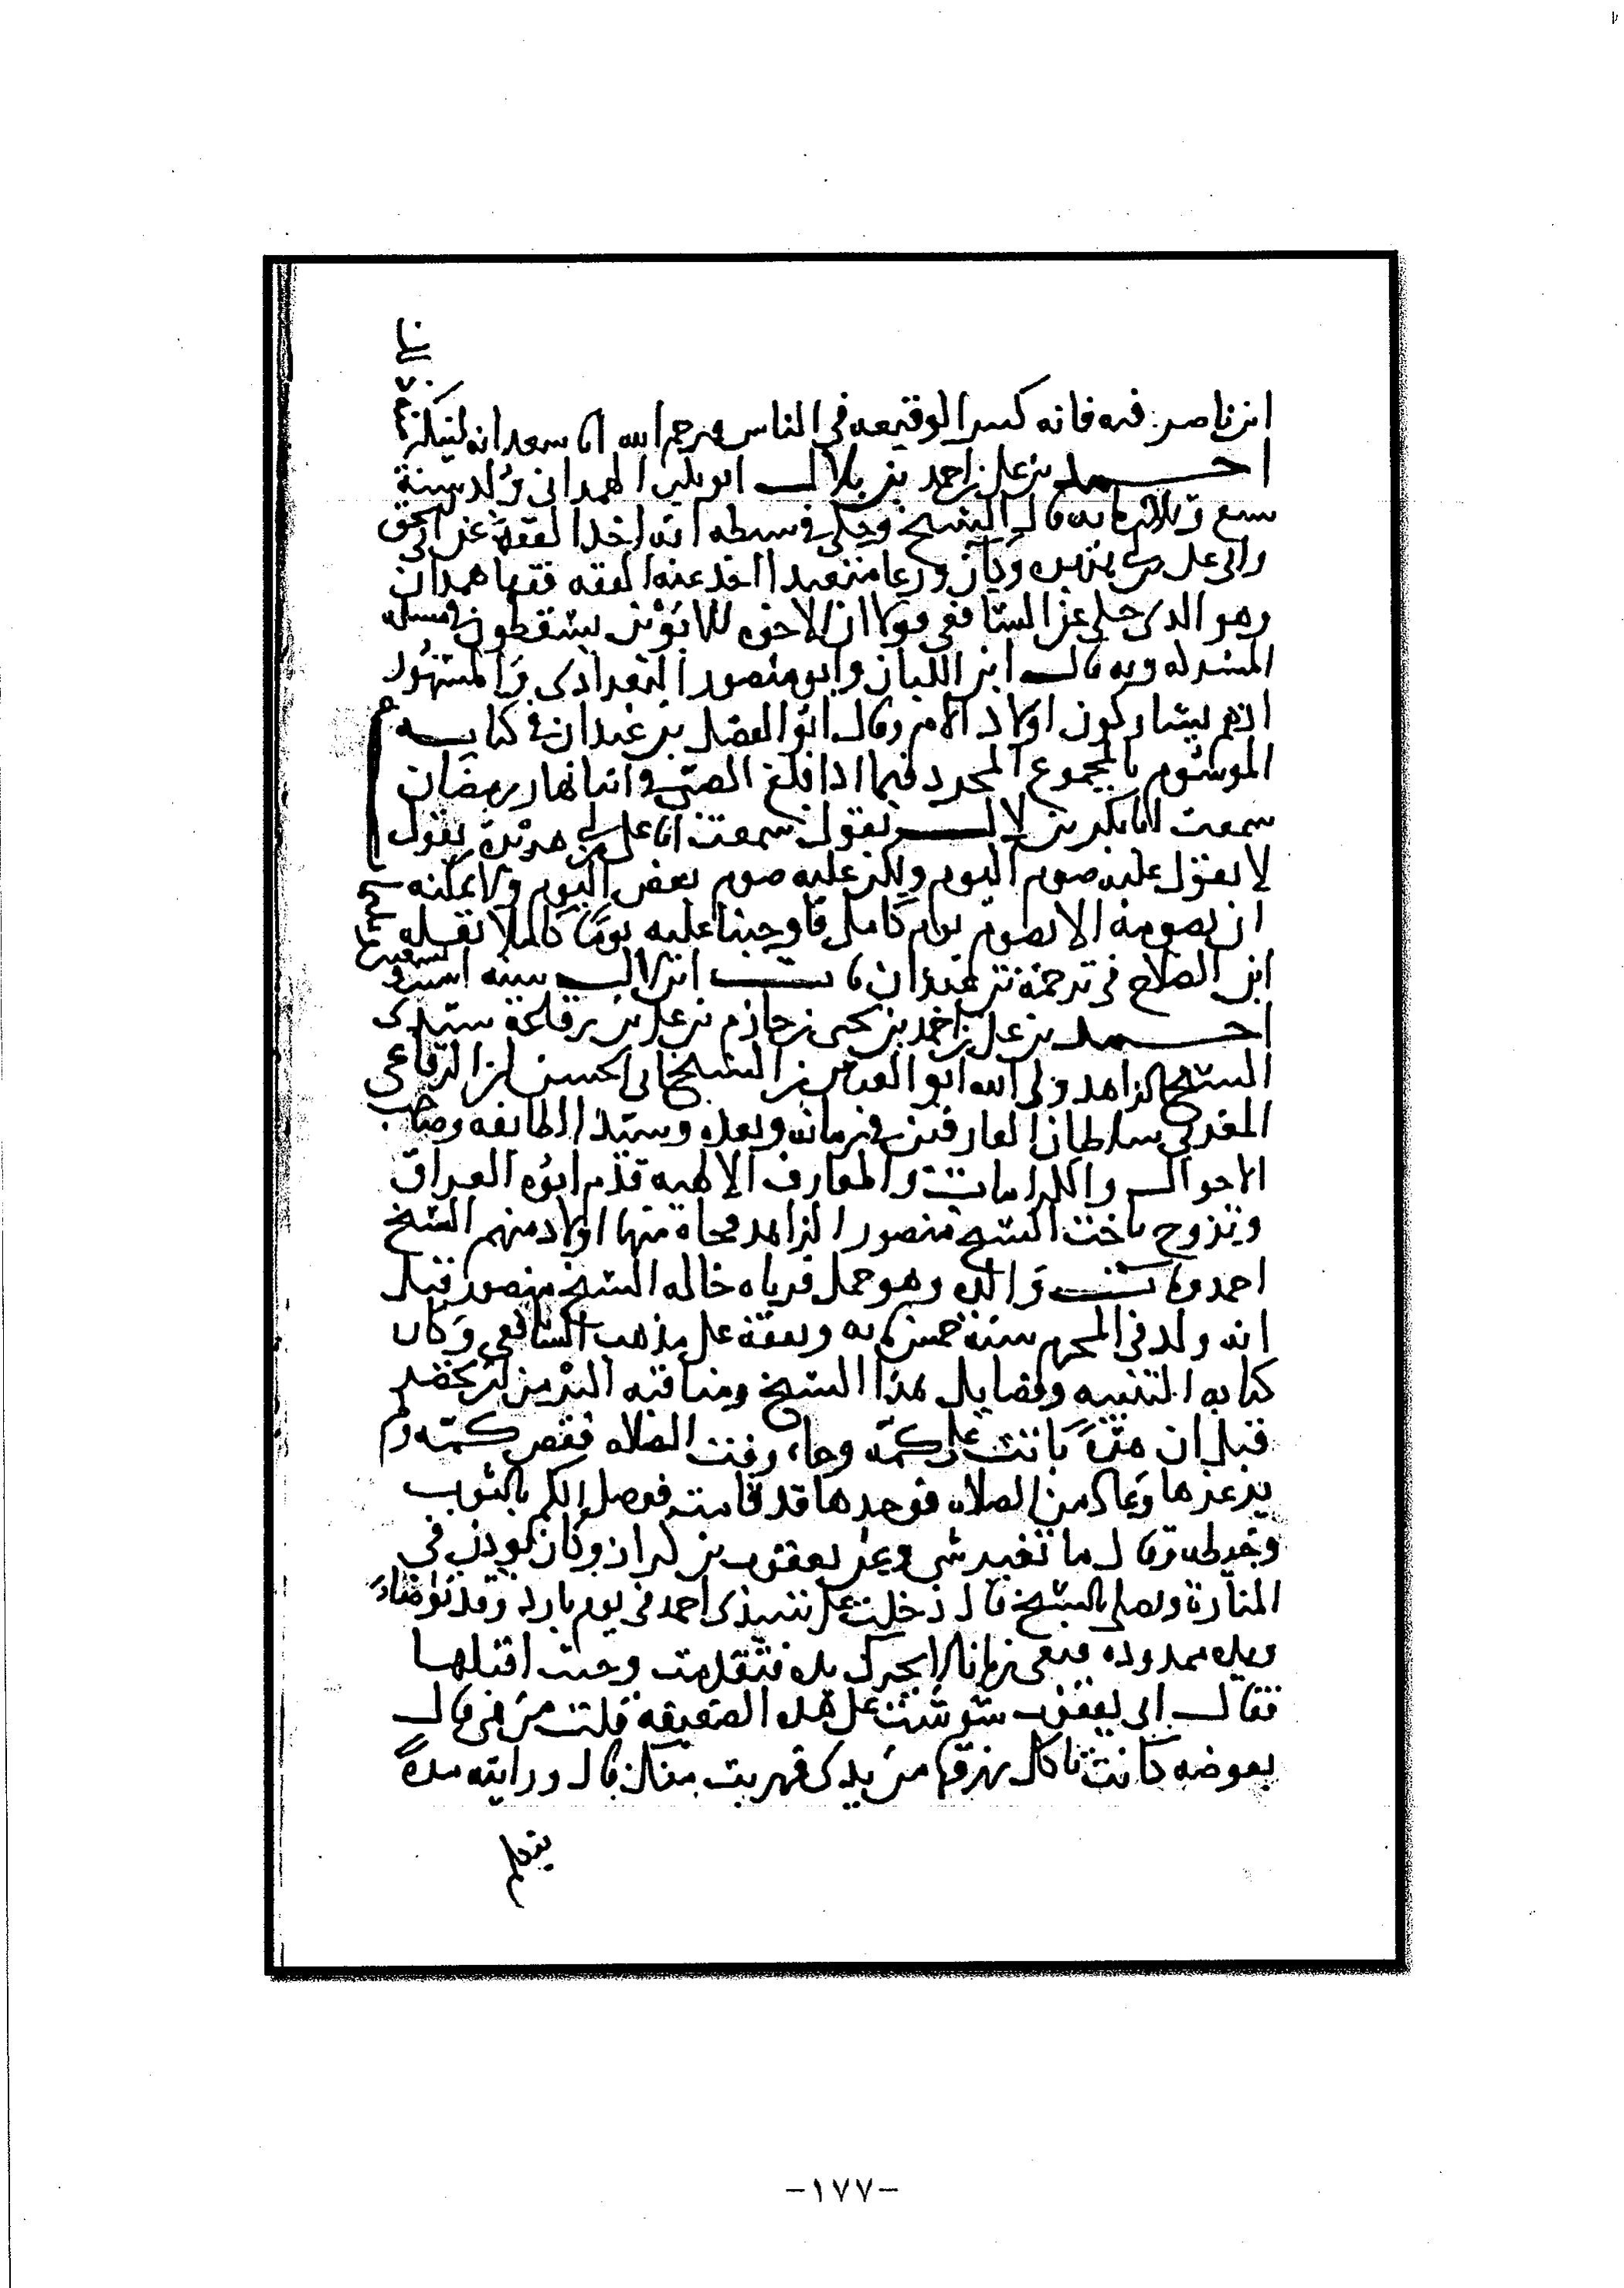 ابن ناصر فيه فانه كثير الوقيعه في الناس فرحم الله ابا سعد انه ليتكلم
احمد بن علي بن احمد بن بلال ابو بكر الهمداني ولد سنة
سبع وثلاثمايه قال الشيخ وحكى في بسطه انه اخذ الفقه عن ابي اسحق
وابي علي بن ابي هريره وكان ورعا متعبدا اخذ عنه الفقه فقها همدان
وهو الذي حكى عن الشافعي قولا ان الاخوه للابوين يسقطون في مسله
المشركه وبه قال ابن اللبان وابو منصور البغدادي والمشهور
انهم يشاركون اولاد الام وقال ابو الفضل بن عبدان في كتابه
الموسوم بالمجموع المجرد فيما اذا بلغ الصبي في اثنا نهار رمضان
سمعت ابا بكر بن لال يقول سمعت ابا علي بن ابي هريرة يقول
لا نقول عليه صوم اليوم ولكن عليه صوم بعض اليوم ولا يمكنه
ان يصومه الا بصوم يوم كامل فاوجبنا عليه يوما كاملا نقله
ابن الصلاح في ترجمة بن عبدان مات ابن لال سنه
احمد بن علي بن احمد بن يحيى بن حازم بن علي بن رفاعة سيدي
الشيخ الزاهد ولي الله ابو العباس بن الشيخ ابي الحسن بن الرفاعي
المغربي سلطان العارفين في زمانه وبعده وسيد الطائفه وصاحب
الاحوال والكرامات والمعارف الالهيه قدم ابوه العراق
وتزوج باخت الشيخ منصور الزاهد فجاه منها اولاد منهم الشيخ
احمد ومات والده وهو حمل فرباه خاله الشيخ منصور قيل
انه ولد في المحرم سنة خمس مايه وتفقه على مذهب الشافعي وكان
كتابه التنبيه وفضايل هذا الشيخ ومناقبه اكثر من ان تحصر
قيل ان هرة نامت على كمه وجاء وقت الصلاه فقص كمه ولم
يزعجها وعاد من الصلاه فوجدها قد قامت فوصل الكم بالثوب
وخيطه وقال ما تغير شي وعن يعقوب بن كراز وكان يوذن في
المنارة ويصلي بالشيخ قال دخلت على سيدي احمد في يوم بارد وقد توضا
ويده ممدوده فبقي زمانا لا يحرك يده فتقدمت وجيت اقبلها
فقال اي يعقوب شوشت على هذه الضعيفه قلت من هي قال
بعوضه كانت تاكل رزقها من يدي فهربت منك قال ورايته مرة
يتكلم
-١٧٧-